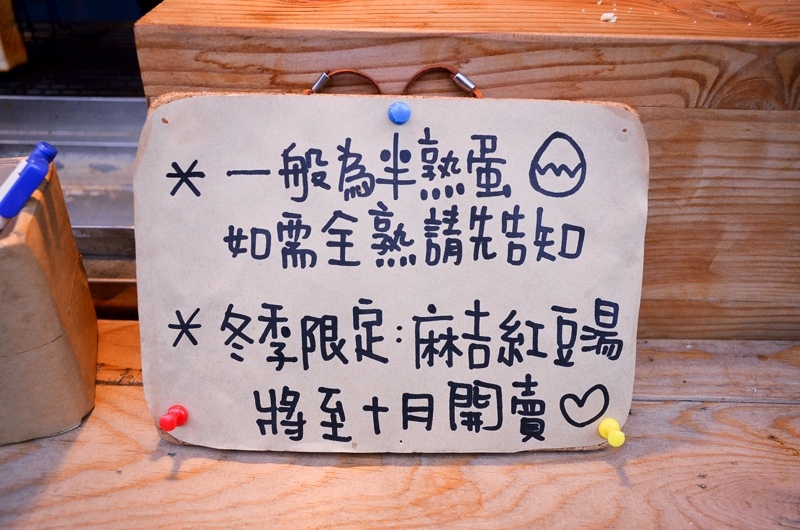 * 一般為半熟蛋
如需全熟請先告知
* 冬季限定:麻吉紅豆湯
將至十月開賣